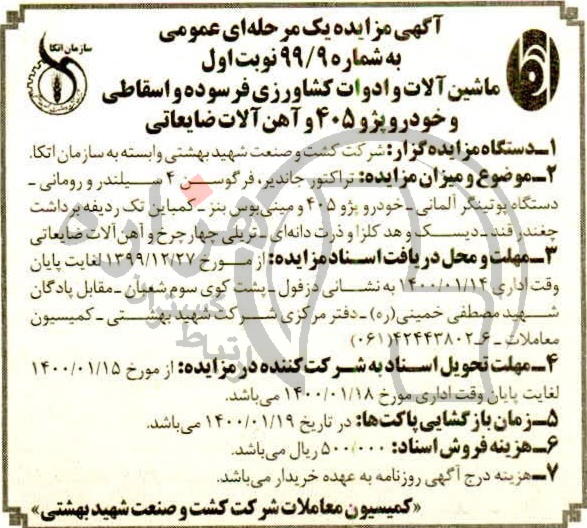 آگهی مزایده یک مرحله‌ای عمومی
به شماره ۹۹/۹ نوبت اول
ماشین آلات و ادوات کشاورزی فرسوده و اسقاطی
و خودرو پژو ۴۰۵ و آهن آلات ضایعاتی
سازمان اتکا
۱ـ دستگاه مزایده گزار: شرکت کشت و صنعت شهید بهشتی وابسته به سازمان اتکا.
۲ـ موضوع و میزان مزایده: تراکتور جاندیر، فرگوسن ۴ سیلندر و رومانی ـ
دستگاه پوتینگر آلمانی ـ خودرو پژو ۴۰۵ و مینی‌بوس بنز ـ کمباین تک ردیفه برداشت
چغندر قند ـ دیسک و هد کلزا و ذرت دانه‌ای ـ تریلی چهار چرخ و آهن آلات ضایعاتی
۳ـ مهلت و محل دریافت اسناد مزایده: از مورخ ۱۳۹۹/۱۲/۲۷ لغایت پایان
وقت اداری ۱۴۰۰/۰۱/۱۴ به نشانی دزفول ـ پشت کوی سوم شعبان ـ مقابل پادگان
شهید مصطفی خمینی(ره) ـ دفتر مرکزی شرکت شهید بهشتی ـ کمیسیون
معاملات ـ ۶ـ۴۲۴۴۳۸۰۲(۰۶۱)
۴ـ مهلت تحویل اسناد به شرکت کننده در مزایده: از مورخ ۱۴۰۰/۰۱/۱۵
لغایت پایان وقت اداری مورخ ۱۴۰۰/۰۱/۱۸ می‌باشد.
۵ـ زمان بازگشایی پاکت‌ها: در تاریخ ۱۴۰۰/۰۱/۱۹ می‌باشد.
۶ـ هزینه فروش اسناد: ۵۰۰/۰۰۰ ریال می‌باشد.
۷ـ هزینه درج آگهی روزنامه به عهده خریدار می‌باشد.
«کمیسیون معاملات شرکت کشت و صنعت شهید بهشتی»